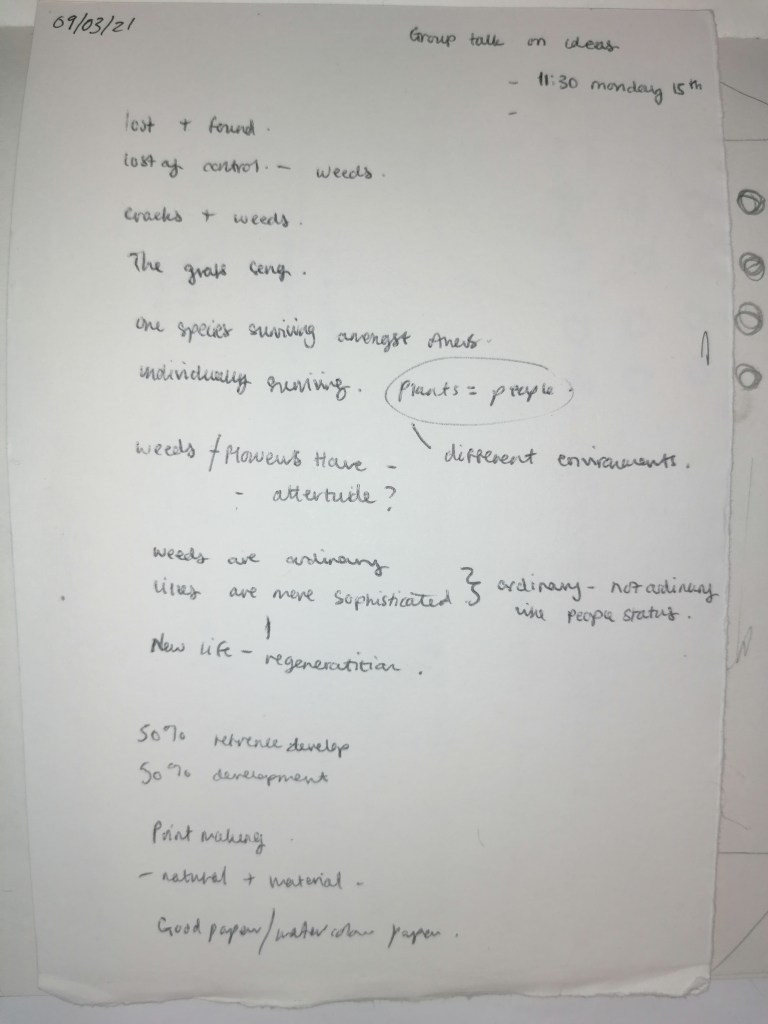 09/03/21
Group talk on ideas
- 11:30 monday 15th
-
lost + found.
lost of control. - weeds.
cracks + weeds.
The grass
one species surviving amongst
individually surviving. Plants = people.
weeds / flowers Have - different enviroments.
- attertude?
weeds are ordinary
lilies are more sophisticated } ordinary - not ordinary
like people status.
New life - regeneratition.
50% refrence develop
50% development
Print making
- natural + material -
Good paper/water colour paper.